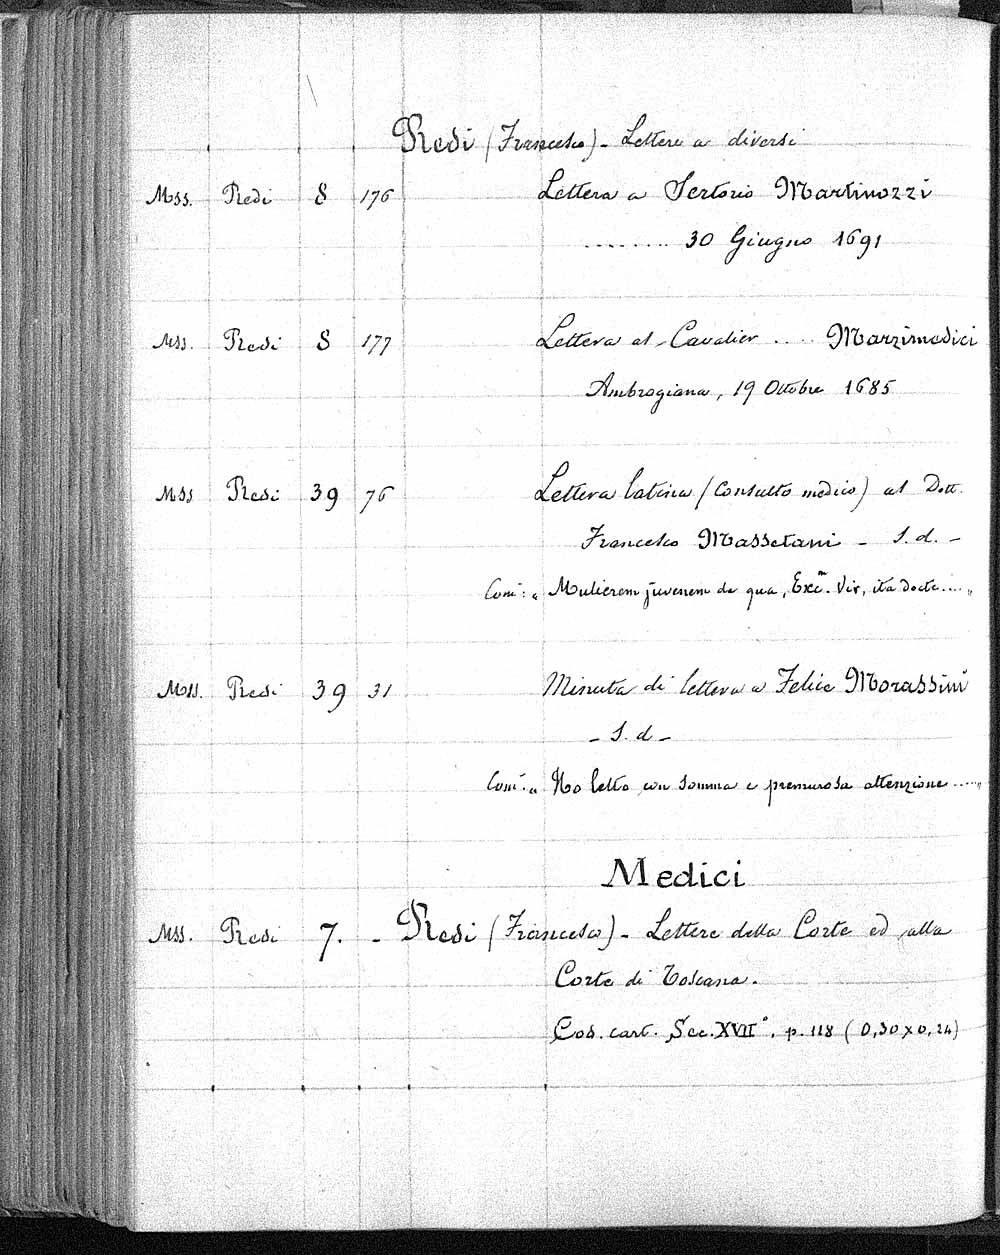 Redi (Francesco) - Lettere a diversi
Mss. Redi 8 176 Lettera a Sertorio Martinozzi
......... 30 Giugno 1691
Mss. Redi 8 177 Lettera al Cavalier ..... Marzimedici
Ambrogiana, 19 Ottobre 1685
Mss Redi 39 76 Lettera latina (Consulto medico) al Dott.
Francesco Massetani - S. d. -
Com: „ Mulierem juvenem de qua, Exc.m Vir, ita docte .... „
Mss. Redi 39 31 Minuta di lettera a Felice Morassini
- S. d -
Com: „ Ho letto con somma e premurosa attenzione ..... „
Medici
Mss. Redi 7. - Redi (Francesco) - Lettere della Corte ed alla
Corte di Toscana.
Cod. cart. Sec. XVII°. p. 118 (0,30 x 0,24)